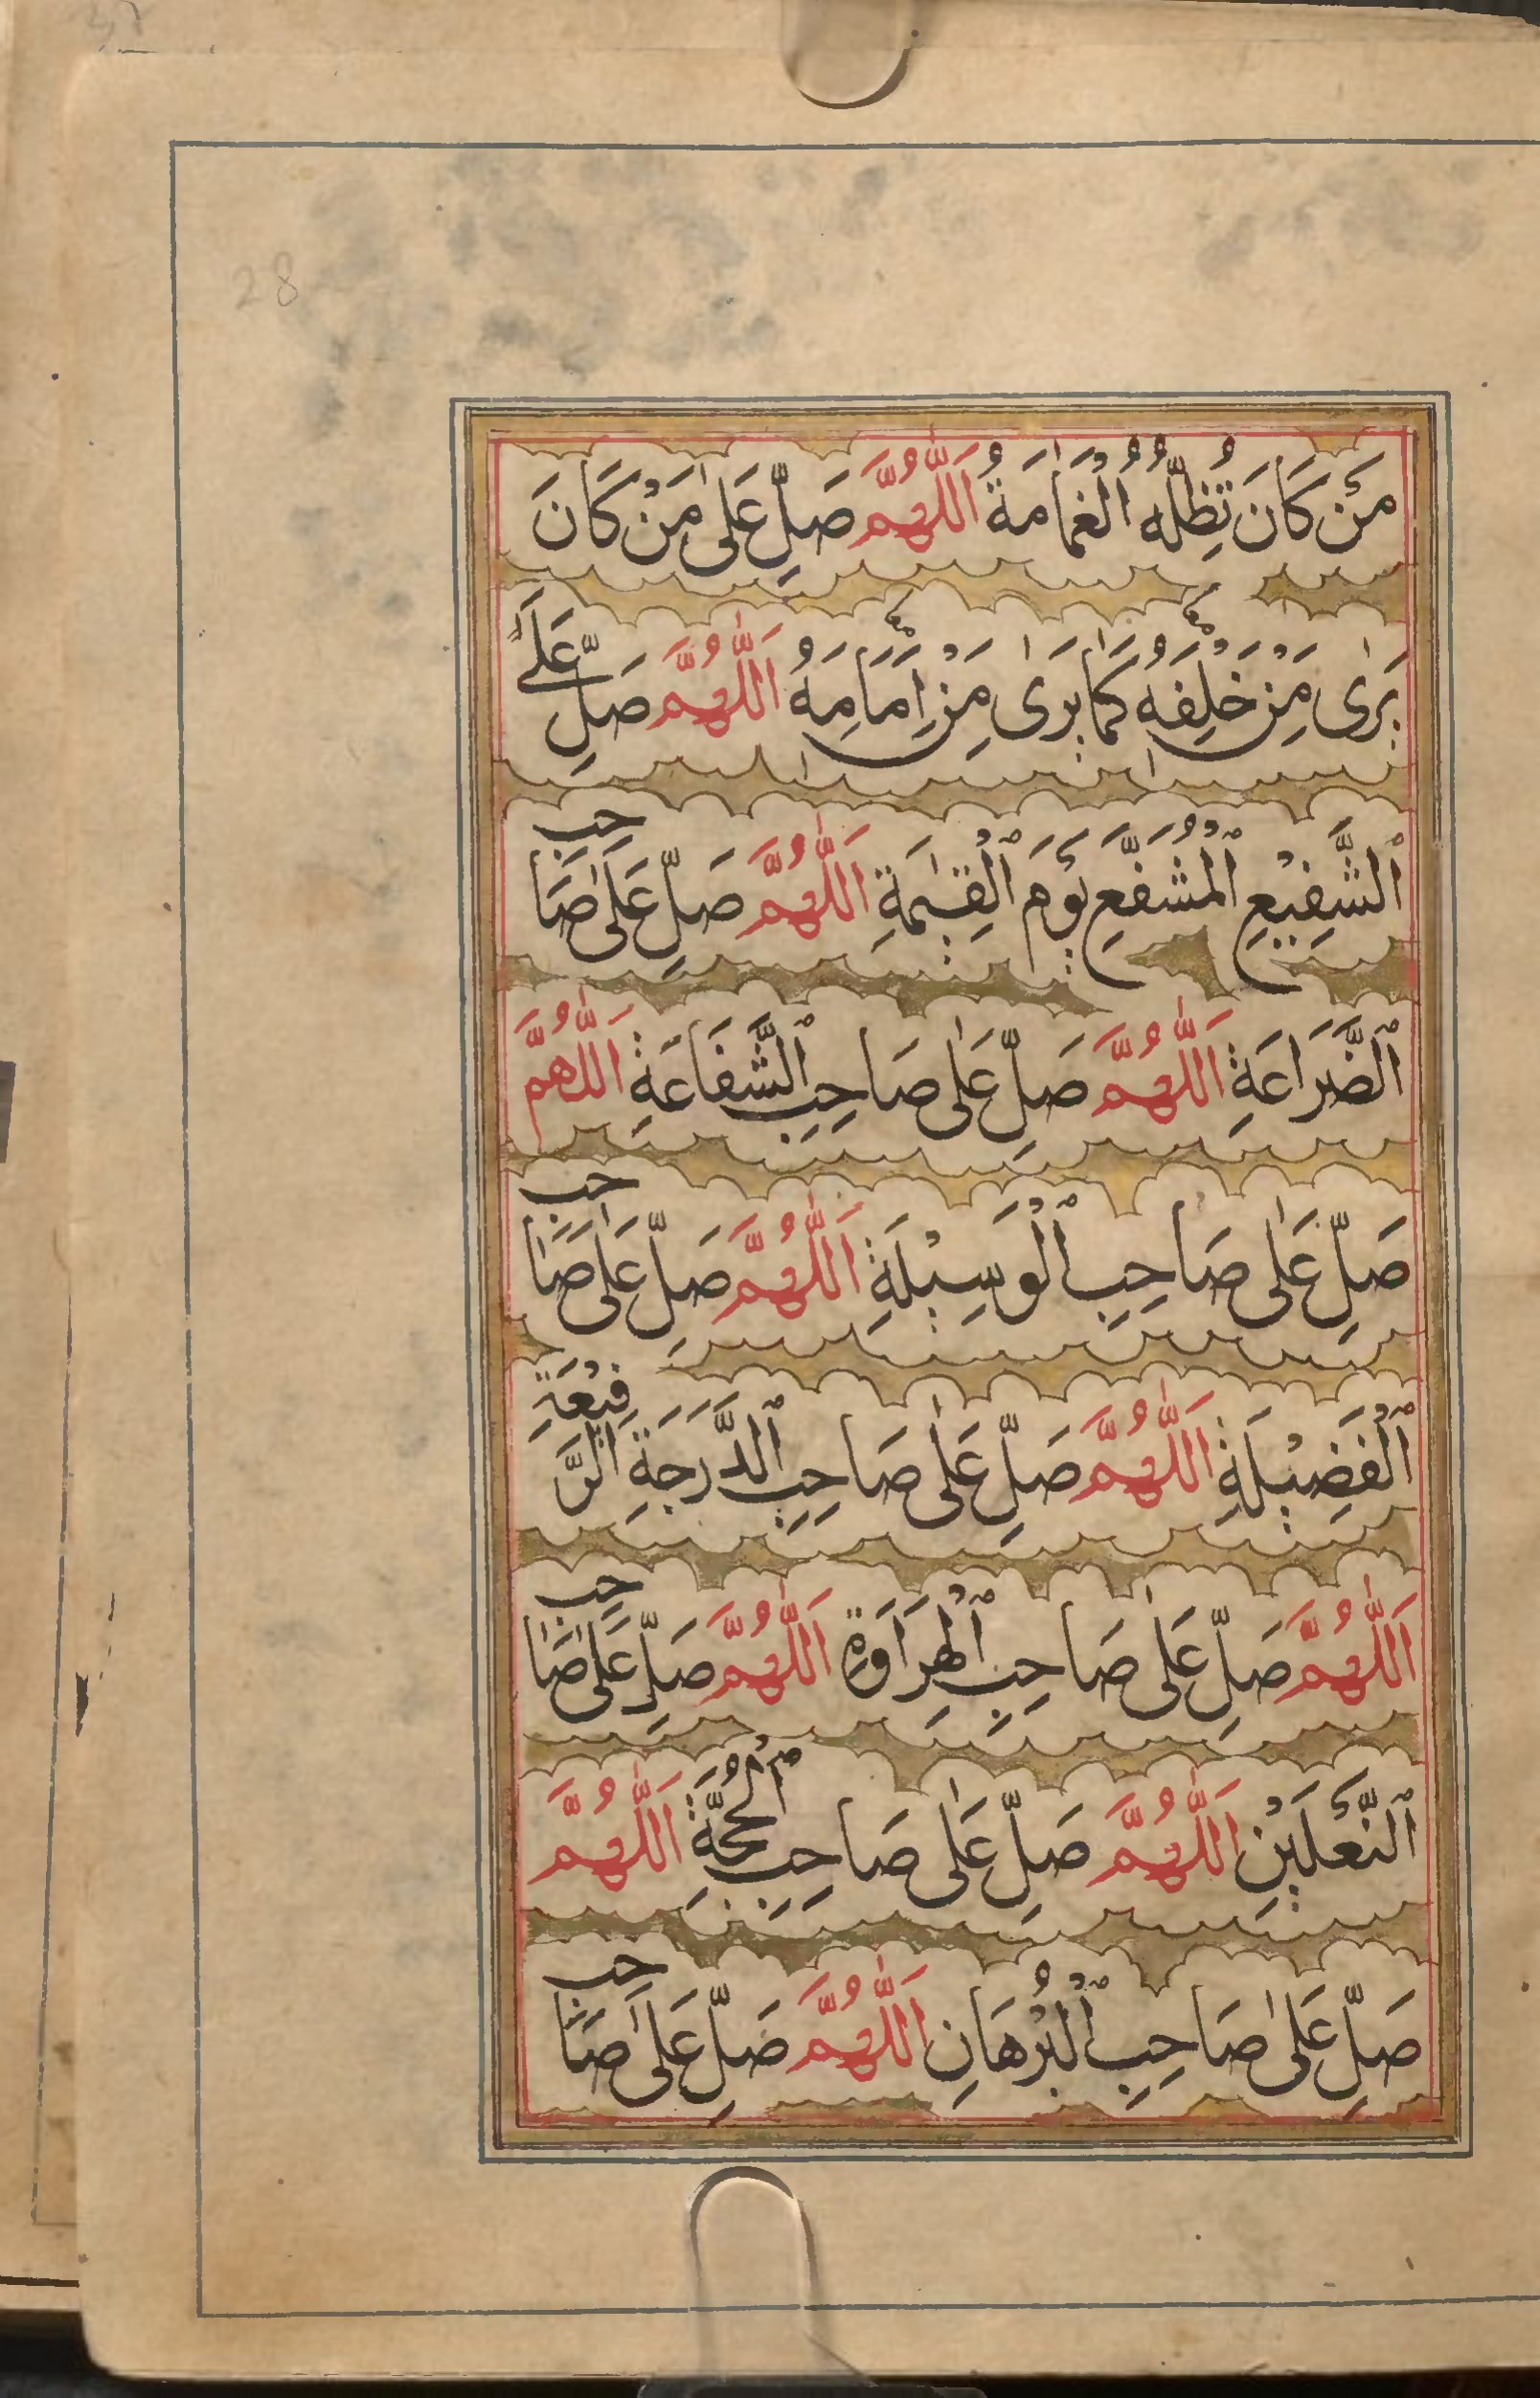 28
مَنْ كَانَ تُظِلُّهُ ٱلْغَمَامَةُ اَللّٰهُمَّ صَلِّ عَلٰى مَنْ كَانَ
يَرٰى مِنْ خَلْفِهٖ كَمَا يَرٰى مِنْ اِمَامِهٖ اَللّٰهُمَّ صَلِّ عَلَى
ٱلشَّفِيْعِ ٱلْمُشَفَّعِ يَوْمَ ٱلْقِيٰمَةِ اَللّٰهُمَّ صَلِّ عَلٰى صَاحِبِ
ٱلضَّرَاعَةِ اَللّٰهُمَّ صَلِّ عَلٰى صَاحِبِ ٱلشَّفَاعَةِ اَللّٰهُمَّ
صَلِّ عَلٰى صَاحِبِ ٱلْوَسِيْلَةِ اَللّٰهُمَّ صَلِّ عَلٰى صَاحِبِ
ٱلْفَضِيْلَةِ اَللّٰهُمَّ صَلِّ عَلٰى صَاحِبِ ٱلدَّرَجَةِ الرَّفِيْعَةِ
اَللّٰهُمَّ صَلِّ عَلٰى صَاحِبِ ٱلْهِرَاوَةِ اَللّٰهُمَّ صَلِّ عَلٰى صَاحِبِ
ٱلنَّعْلَيْنِ اَللّٰهُمَّ صَلِّ عَلٰى صَاحِبِ ٱلْحُجَّةِ اَللّٰهُمَّ
صَلِّ عَلٰى صَاحِبِ ٱلْبُرْهَانِ اَللّٰهُمَّ صَلِّ عَلٰى صَاحِبِ